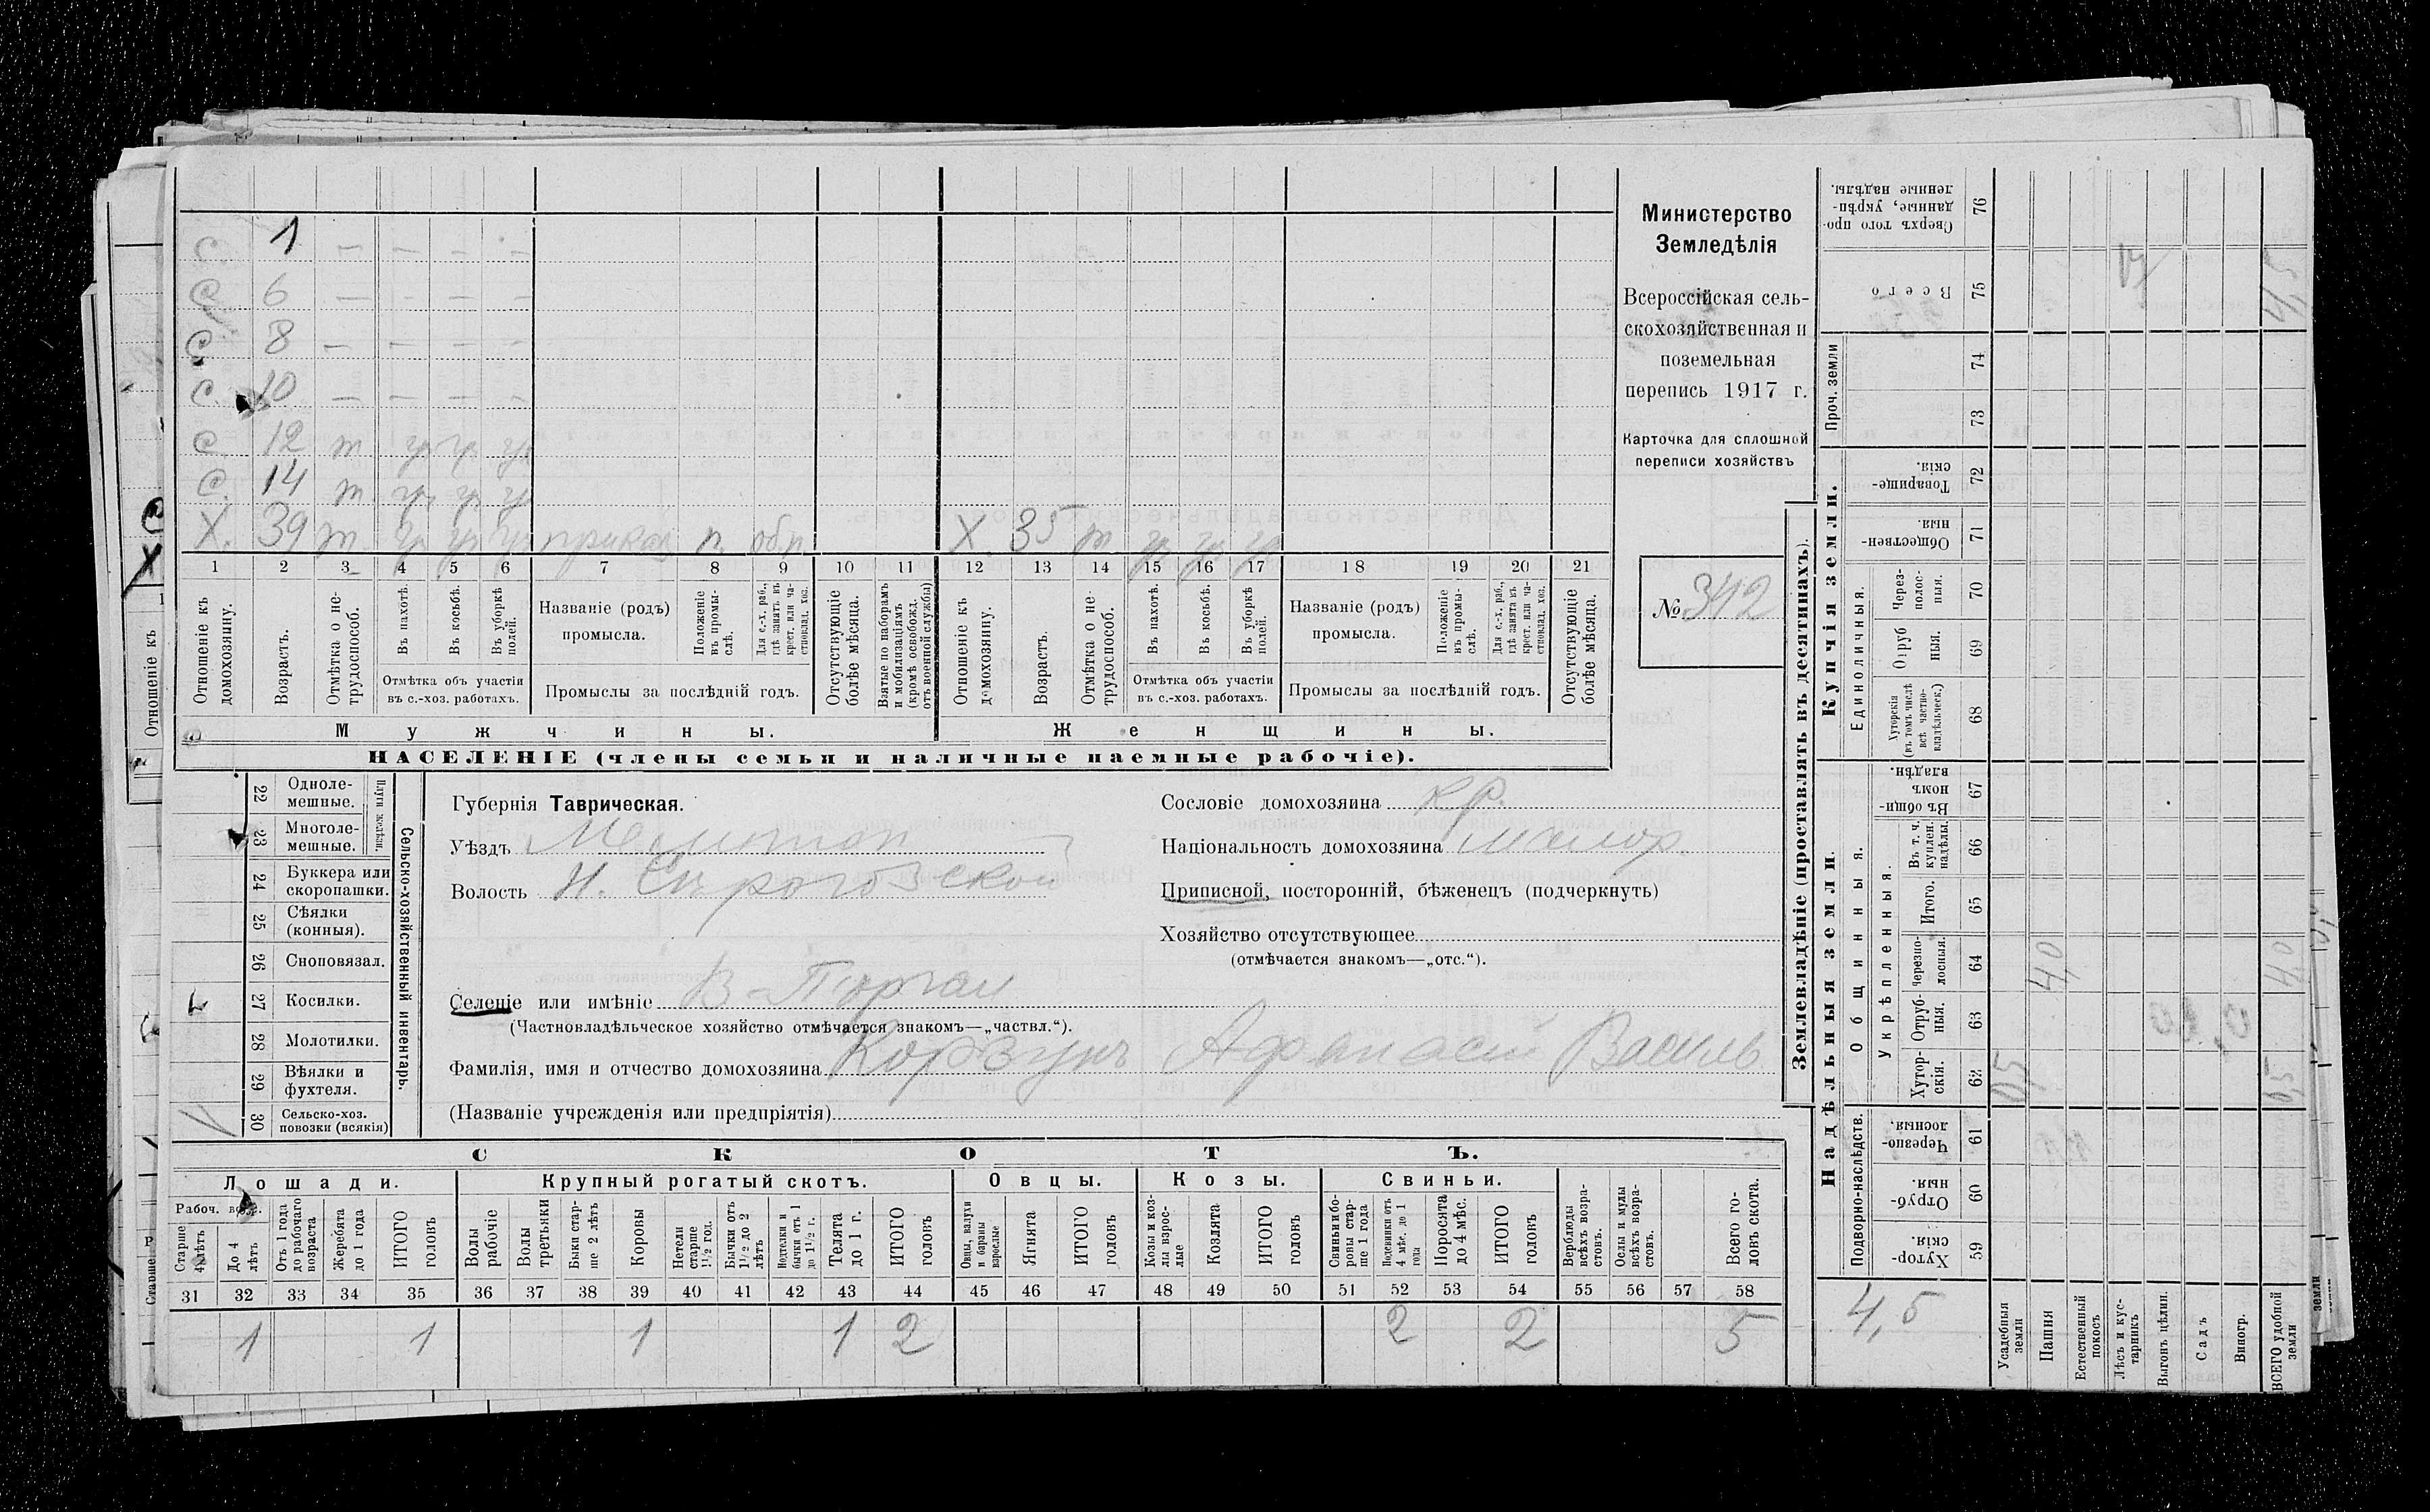 С. 1 — — — —
С. 6 — — — —
С. 8 — — — —
С. 10 — — — —
С. 12 т гр гр гр
С. 14 т. гр. гр гр
Х. 39 т. гр гр гр приказ п. обр. Х. 35 т гр гр гр
1 2 3 4 5 6 7 8 9 10 11 12 13 14 15 16 17 18 19 20 21
Отношеніе къ домохозяину.
Возрастъ.
Отмѣтка о нетрудоспособ.
Въ пахотѣ.
Въ косьбѣ.
Въ уборкѣ полей.
Отмѣтка объ участіи
въ с.-хоз. работахъ.
Названіе (родъ)
промысла.
Положеніе въ промыслѣ.
Для с.-х. раб., гдѣ занятъ въ крест. или частновлад. хоз.
Промыслы за послѣдній годъ.
Отсутствующіе болѣе мѣсяца.
Взятые по наборамъ и мобилизаціямъ (кромѣ освобожд. отъ военной службы)
Отношеніе къ домохозяину.
Возрастъ.
Отмѣтка о нетрудоспособ.
Въ пахотѣ.
Въ косьбѣ.
Въ уборкѣ полей.
Отмѣтка объ участіи
въ с.-хоз. работахъ.
Названіе (родъ)
промысла.
Положеніе въ промыслѣ.
Для с.-х. раб., гдѣ занята въ крест. или частновлад. хоз.
Промыслы за послѣдній годъ.
Отсутствующіе болѣе мѣсяца.
Мужчины. Женщины.
НАСЕЛЕНІЕ (члены семьи и наличные наемные рабочіе).
Министерство
Земледѣлія
Всероссійская сель-
скохозяйственная и
поземельная
перепись 1917 г.
Карточка для сплошной
переписи хозяйствъ
№ 342
22 Одноле-
мешные.
23 Многоле-
мешные.
Плуги желѣзн.
24 Буккера или
скоропашки.
25 Сѣялки
(конныя).
26 Сноповязал.
27 Косилки.
28 Молотилки.
29 Вѣялки и
фухтеля.
30 Сельско-хоз.
повозки (всякія)
Сельско-хозяйственный инвентарь.
Губернія Таврическая.
Уѣздъ Мелитоп
Волость Н. Сѣрогозской
Селеніе или имѣніе В-Торгаи
(Частновладѣльческое хозяйство отмѣчается знакомъ—„частвл.“).
Фамилія, имя и отчество домохозяина Корзунъ Афанасій Василь
(Названіе учрежденія или предпріятія)
Сословіе домохозяина кр.
Національность домохозяина малор.
Приписной, посторонній, бѣженецъ (подчеркнуть)
Хозяйство отсутствующее
(отмѣчается знакомъ—„отс.“).
СКОТЪ.
Лошади. Крупный рогатый скотъ. Овцы. Козы. Свиньи.
Рабоч. воз.
Старше 4 лѣтъ
До 4 лѣтъ
Отъ 1 года до рабочаго возраста
Жеребята до 1 года
ИТОГО головъ
Волы рабочіе
Волы третьяки
Быки старше 2 лѣтъ
Коровы
Нетели старше 1½ год.
Бычки отъ 1½ до 2 лѣтъ
Подтелки и бычки отъ 1 до 1½ г.
Телята до 1 г.
ИТОГО головъ
Овцы, валухи и бараны взрослые
Ягнята
ИТОГО головъ
Козы и козлы взрослые
Козлята
ИТОГО головъ
Свиньи и боровы старше 1 года
Подсвинки отъ 4 мѣс. до 1 года
Поросята до 4 мѣс.
ИТОГО головъ
Верблюды всѣхъ возрастовъ.
Ослы и мулы всѣхъ возрастовъ.
Всего головъ скота.
31 32 33 34 35 36 37 38 39 40 41 42 43 44 45 46 47 48 49 50 51 52 53 54 55 56 57 58
1 1 1 1 2 2 2 5
Землевладѣніе (проставлять въ десятинахъ).
Купчія земли.
Надѣльныя земли.
Сверхъ того проданные, укрѣпленные надѣлы. 76
Всего 75 4,5
Проч. земли 74 73
Товарищескія. 72
Общественныя. 71
Единоличныя.
Черезполосныя. 70
Отрубныя. 69
Хуторскія (въ томъ числѣ всѣ частновладѣльческ.) 68
Общинныя.
Въ общиномъ владѣн. 67
Укрѣпленныя.
Въ т. ч. куплен. надѣлы. 66
Итого. 65
Черезполосныя. 64 4,0 4,0
Отрубныя. 63
Хуторскія. 62 0,5 0,5
Подворно-наслѣдств.
Черезполосныя. 61
Отрубныя. 60
Хуторскія. 59
4,5
Усадебныя земли
Пашня
Естественный покосъ
Лѣсъ и кустарникъ
Выгонъ цѣлин.
Садъ
Виногр.
ВСЕГО удобной земли